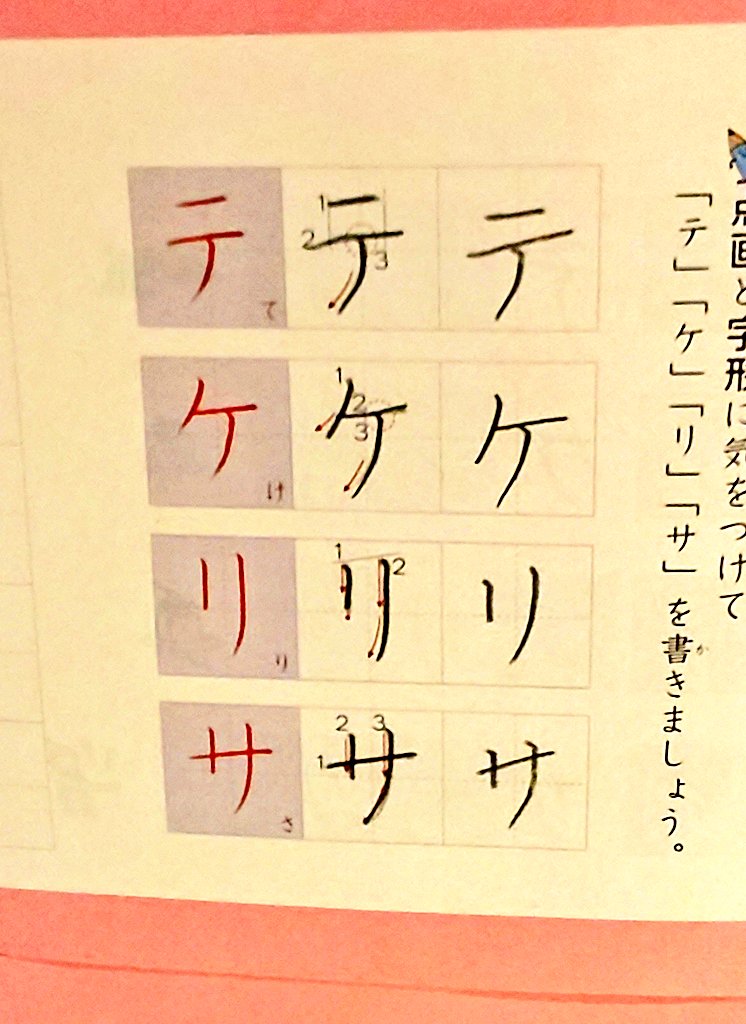 点画と字形に気をつけて
「テ」「ケ」「リ」「サ」を書きましょう。
か
テ て 1 2 3 テ テ
ケ け 1 2 3 ケ ケ
リ り 1 2 リ リ
サ さ 1 2 3 サ サ